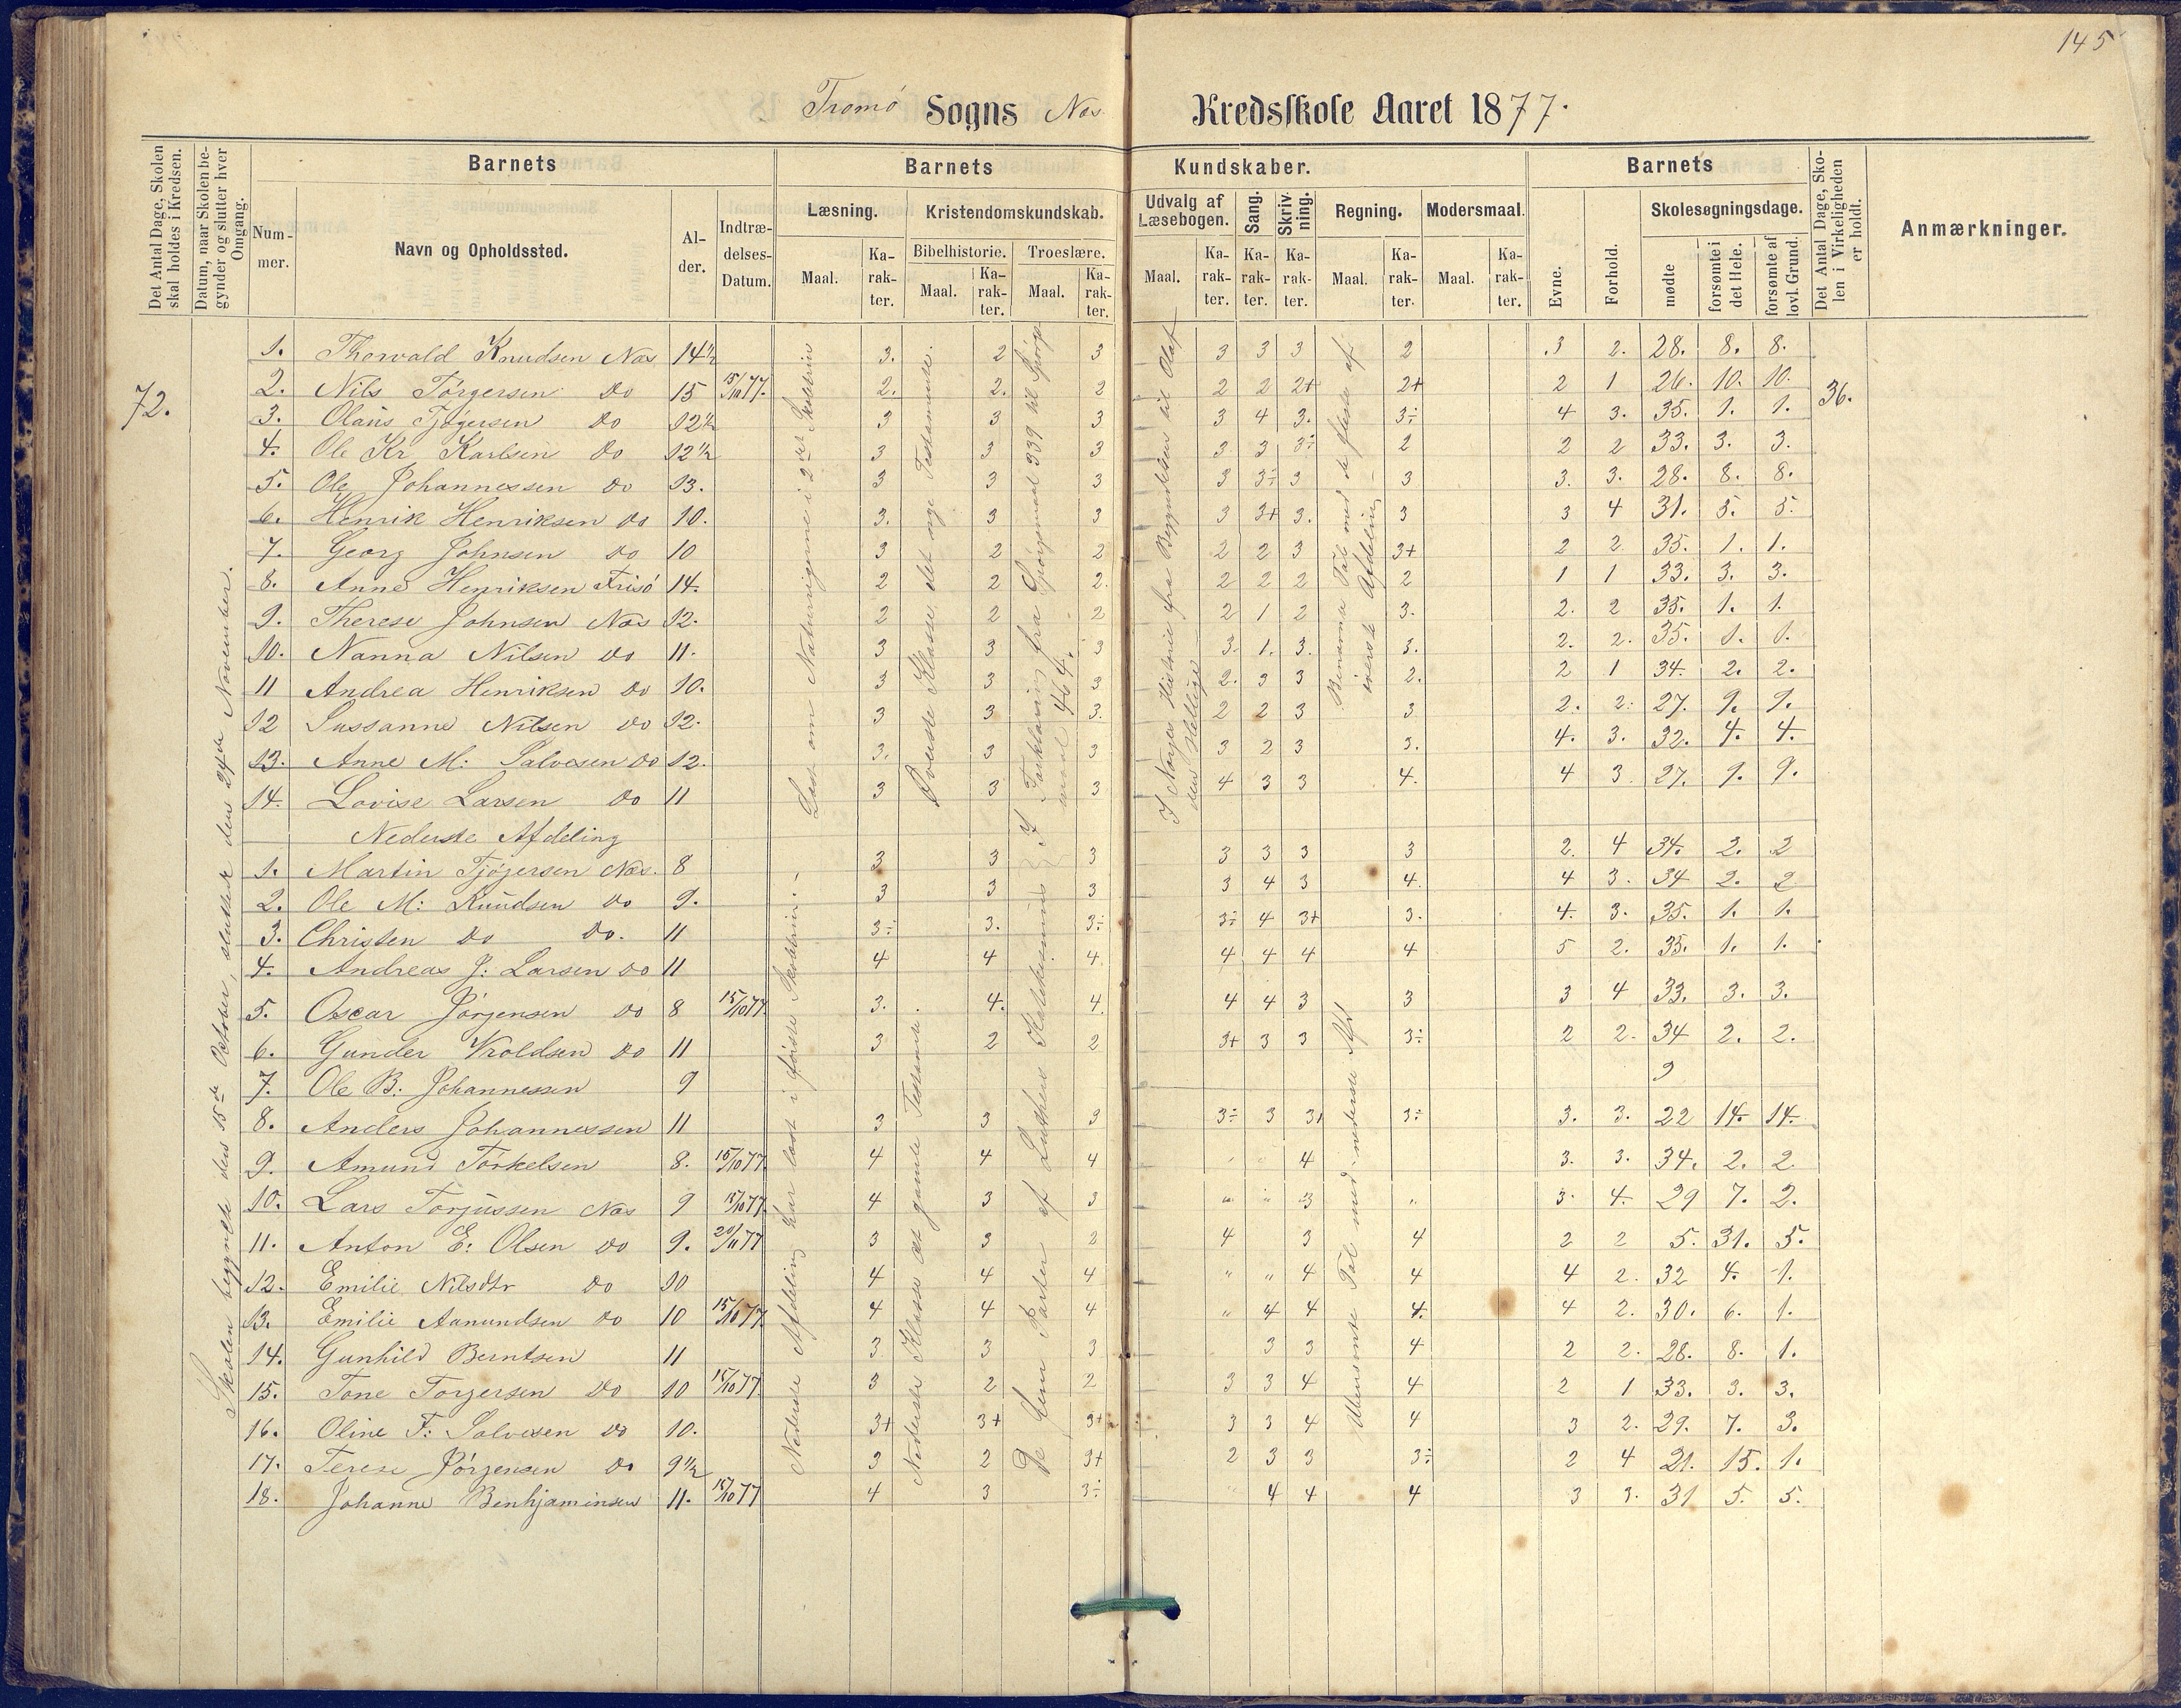 145
Tromø Sogns Næs Kredsskole Aaret 1877.
Det Antal Dage, Skolen skal holdes i Kredsen.
Datum, naar Skolen begynder og slutter hver Omgang.
Barnets
Nummer.
Navn og Opholdssted.
Alder.
Indtrædelses-Datum.
Barnets Kundskaber.
Læsning.
Maal.
Karakter.
Kristendomskundskab.
Bibelhistorie.
Maal.
Karakter.
Troeslære.
Maal.
Karakter.
Udvalg af Læsebogen.
Maal.
Karakter.
Sang.
Karakter.
Skrivning.
Karakter.
Regning.
Maal.
Karakter.
Modersmaal.
Maal.
Karakter.
Barnets
Evne.
Forhold.
Skolesøgningsdage.
mødte
forsømte i det Hele.
forsømte af lovl. Grund.
Det Antal Dage, Skolen i Virkeligheden er holdt.
Anmærkninger.
72.
36.
Skolen begyndte den 15de October, sluttede den 24de November.
Læst om Naturrigerne i 2det Skoletrin
Øverste Klasse, det nye Testamente.
I Forklaring fra Spørgsmaal 339 til Spørgsmaal 464.
I Norges Historie fra Begyndelsen til Olaf den Hellige
Benævnte Tal med de fleste af øverste Afdeling
1. Thorvald Knudsen Næs 14½ 3. 2 3 3 3 3 2 3 2. 28. 8. 8.
2. Nils Törgersen Do 15 15/10 77. 2. 2. 2 2 2 2+ 2+ 2 1 26. 10. 10.
3. Olaus Tjøgersen Do 12½ 3 3 3 3 4 3. 3÷ 4 3. 35. 1. 1.
4. Ole Kr Karlsen Do 12½ 3 3 3 3 3 3÷ 2 2 2 33. 3. 3.
5. Ole Johannessen Do 13. 3 3 3 3 3÷ 3 3 3. 3. 28. 8. 8.
6. Henrik Henriksen Do 10. 3. 3 3 3 3+ 3. 3 3 4 31. 5. 5.
7. Georg Johnsen Do 10 3 2 2 2 2 3 3+ 2 2 35. 1. 1.
8. Anne Henriksen Frisö 14. 2 2 2. 2 2 2 2 1 1 33. 3. 3.
9. Therese Johnsen Næs 12. 2 2 2 2 1 2 3. 2. 2 35. 1. 1.
10. Nanna Nilsen Do 11. 3 3 3 3. 1. 3. 3. 2. 2. 35. 1. 1.
11 Andrea Henriksen Do 10. 3 3 3 2. 3 3 2. 2 1 34. 2. 2.
12 Sussanne Nilsen Do 12. 3 3 3. 2 2 3 3 2. 2. 27. 9. 9.
13. Anne M: Salvesen Do 12. 3. 3 3 3 2 3 3. 4. 3. 32. 4. 4.
14. Lovise Larsen Do 11 3 3 3 4 3 3 4. 4 3 27. 9. 9.
Nederste Afdeling
Nederste Afdeling har læst i første Skoletrin.
Nederste Klasse det gamle Testamente
De fem Parter af Luthers Katekismus
Ubenævnte Tal med nederste Afd
1. Martin Tjøgersen Næs. 8 3 3 3 3 3 3 3 2. 4 34. 2. 2
2. Ole M: Knudsen Do 9. 3 3 3 3 4 3 4. 4 3. 34 2. 2
3. Christen Do Do. 11 3÷ 3. 3÷ 3÷ 4 3+ 3. 4. 3. 35. 1. 1.
4. Andreas J: Larsen Do 11 4 4 4. 4 4 4 4 5 2. 35. 1. 1.
5. Oscar Jörgensen Do 8 15/10 77. 3. 4. 4. 4 4 3 3 3 4 33. 3. 3.
6. Gunder Kroldsen Do 11 3 2 2 3+ 3 3 3÷ 2 2. 34 2. 2.
7. Ole B: Johannessen 9 9
8. Anders Johannessen 11 3 3 3 3÷ 3 3+ 3÷ 3. 3. 22 14. 14.
9. Amund Törkelsen 8. 15/10 77. 4 4 4 " " 4 3. 3. 34. 2. 2
10. Lars Torjussen Næs 9 15/10 77. 4 3 3 " " 3 " 3. 4. 29 7. 2.
11. Anton E: Olsen Do 9. 20/11 77 3 3 2 4 3 4 2 2 5. 31. 5.
12. Emilie Nilsdtr Do 10 4 4 4 " " 4 4 4 2. 32 4. 1.
13. Emilie Aanundsen Do 10 15/10 77. 4 4 4 " 4 4 4. 4 2. 30. 6. 1.
14. Gunhild Berntsen 11 3 3 3 3 3 4 2 2. 28. 8. 1.
15. Tone Torgersen Do 10 15/10 77. 3 2 2 3 3 4 4 2 1 33. 3. 3.
16. Oline F: Salvesen Do 10. 3+ 3+ 3+ 3 3 4 4 3 2. 29. 7. 3.
17. Terese Jörgensen Do 9½ 3 2 3+ 2 3 3 3÷ 2 4 21. 15. 1.
18. Johanne Benhjaminsen 11. 15/10 77 4 3 3÷ " 4 4 4 3 3. 31 5. 5.